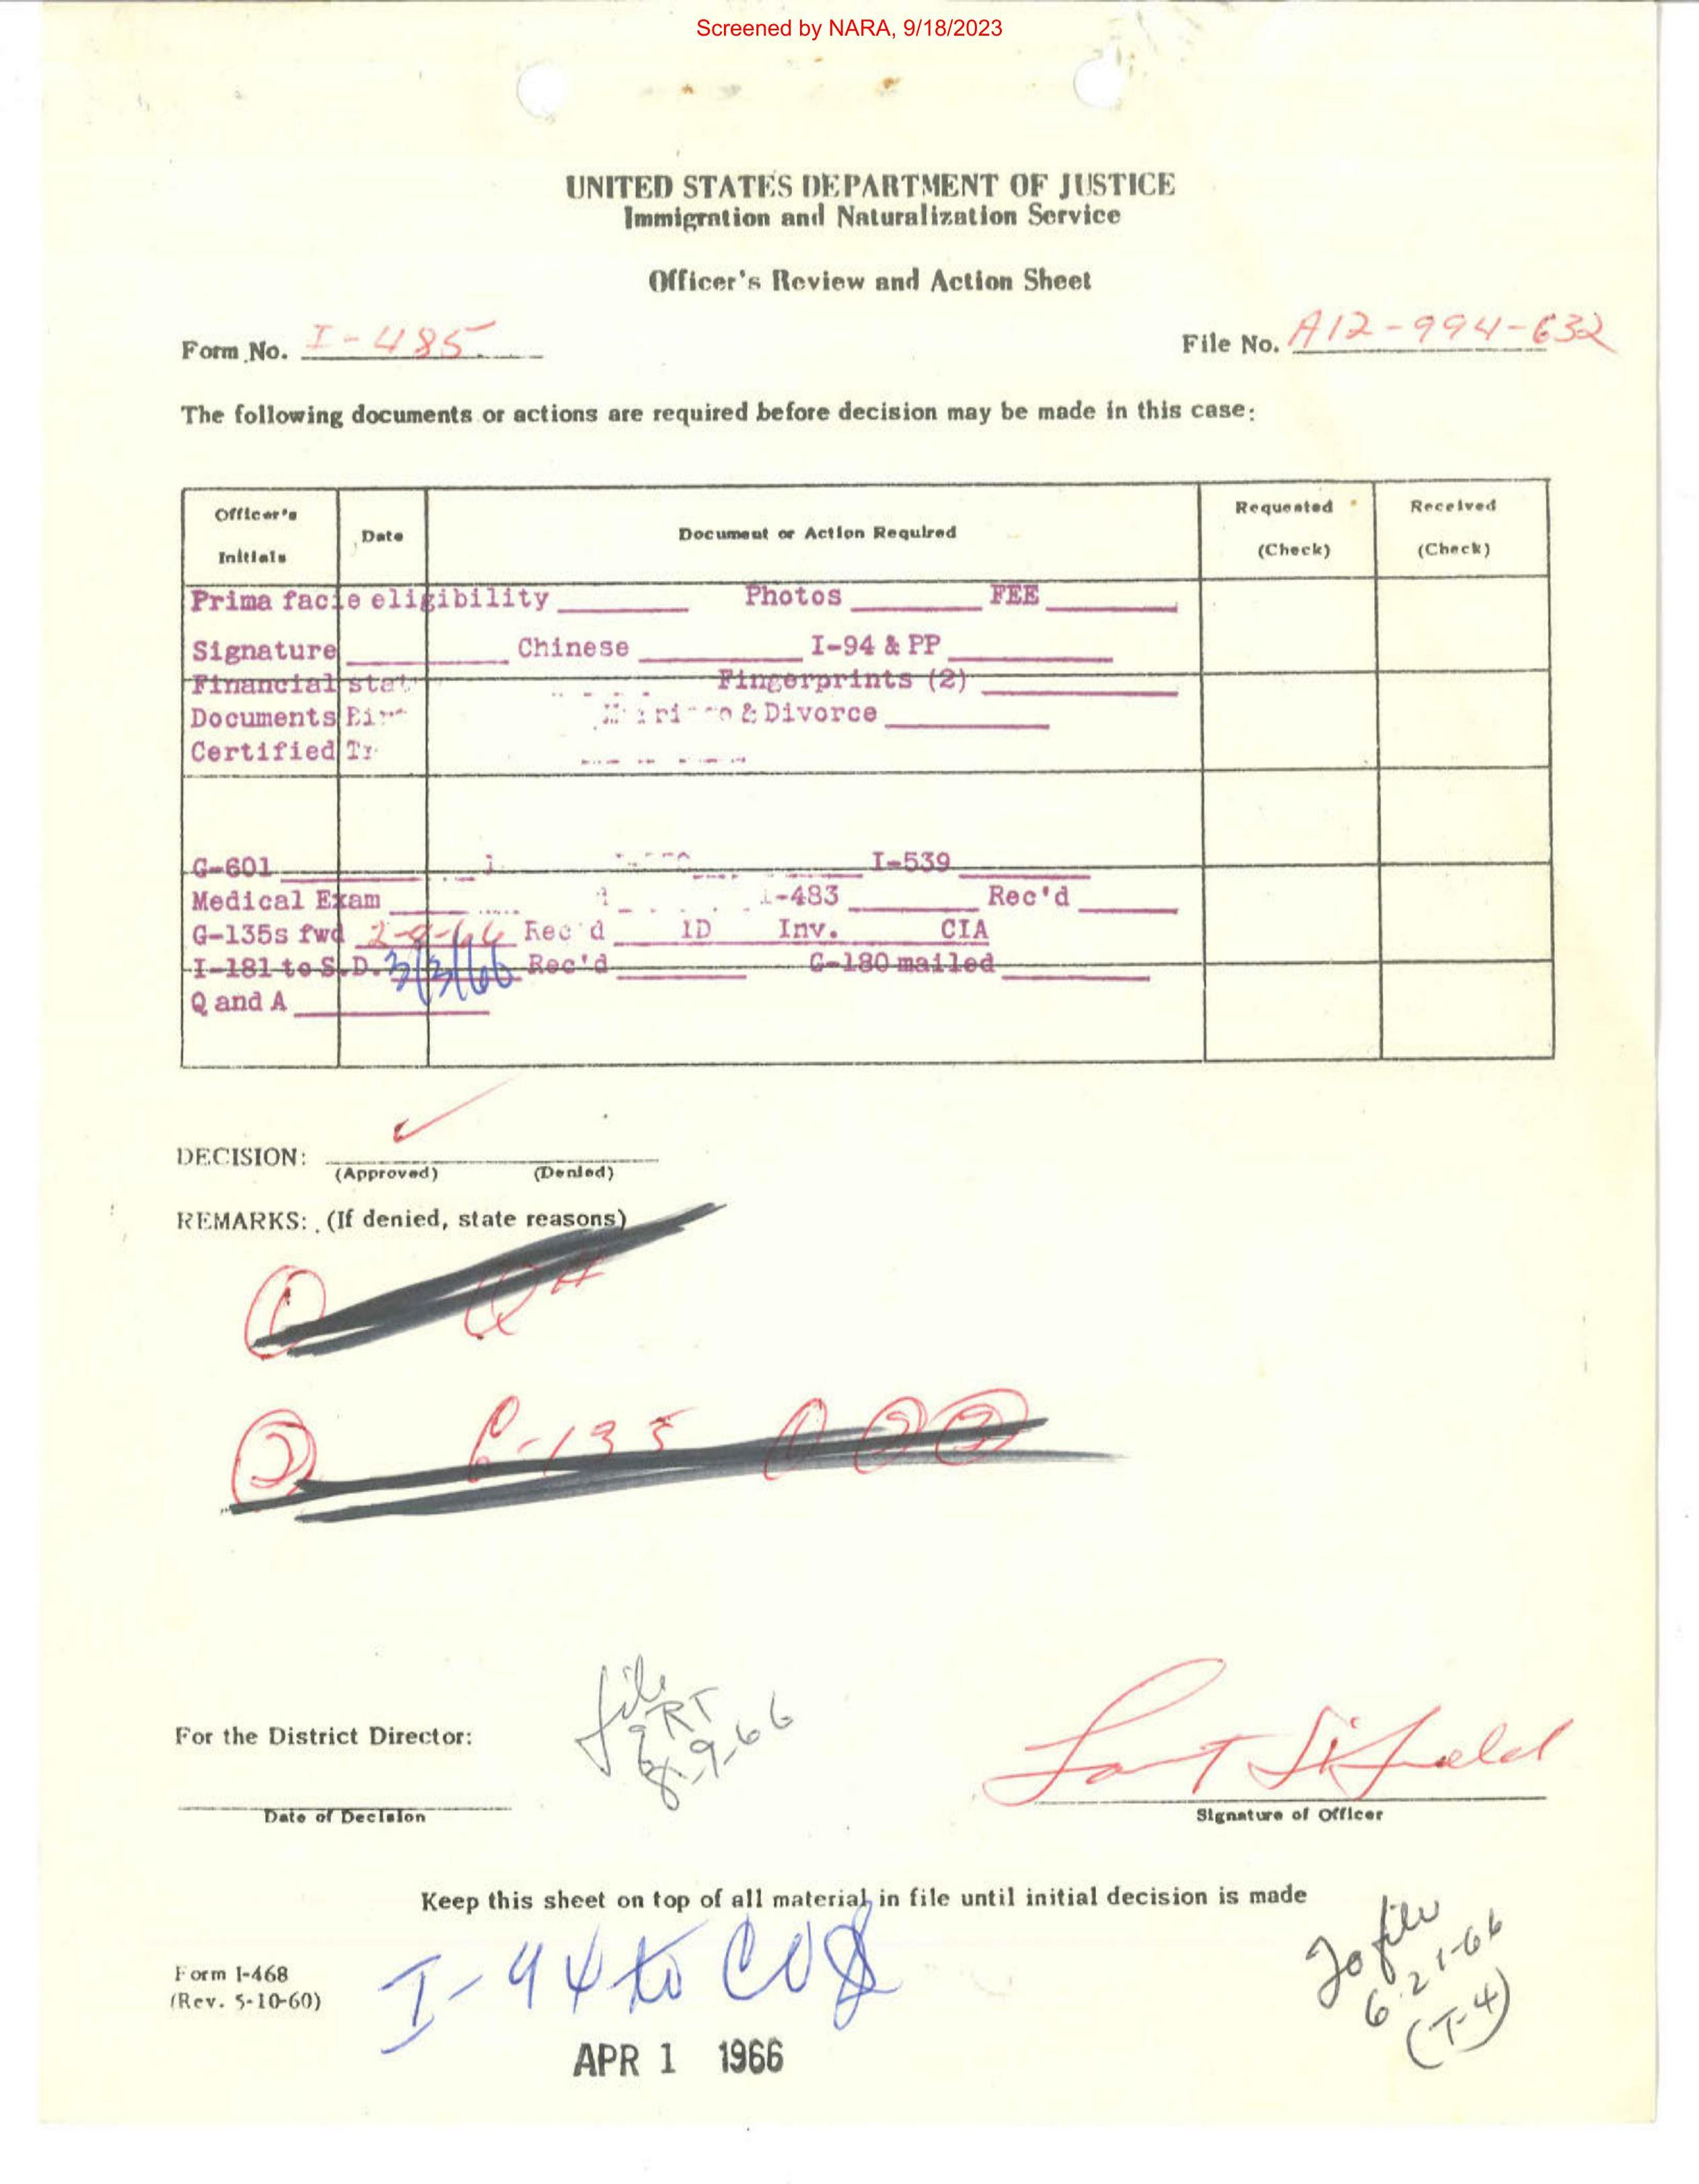 Screened by NARA, 9/18/2023
UNITED STATES DEPARTMENT OF JUSTICE
Immigration and Naturalization Service
Officer's Review and Action Sheet
Form No. I-485
File No. A12-994-632
The following documents or actions are required before decision may be made in this case:
Officer's Initials Date Document or Action Required Requested (Check) Received (Check)
Prima facie eligibility Photos FEE
Signature Chinese I-94 & PP
Financial Fingerprints (2)
Documents & Divorce
Certified
G-601 I-539
Medical Exam I-483 Rec'd
G-135s fwd 2-9-66 Rec'd ID Inv. CIA
I-181 to S.D. 3/3/66 Rec'd G-180 mailed
Q and A
DECISION:
(Approved) (Denied)
REMARKS: (If denied, state reasons)
file
RT
8-9-66
For the District Director:
Date of Decision
Signature of Officer
Keep this sheet on top of all material in file until initial decision is made
Form I-468
(Rev. 5-10-60)
I-94 to CO
To file
6-21-66
(T-4)
APR 1 1966